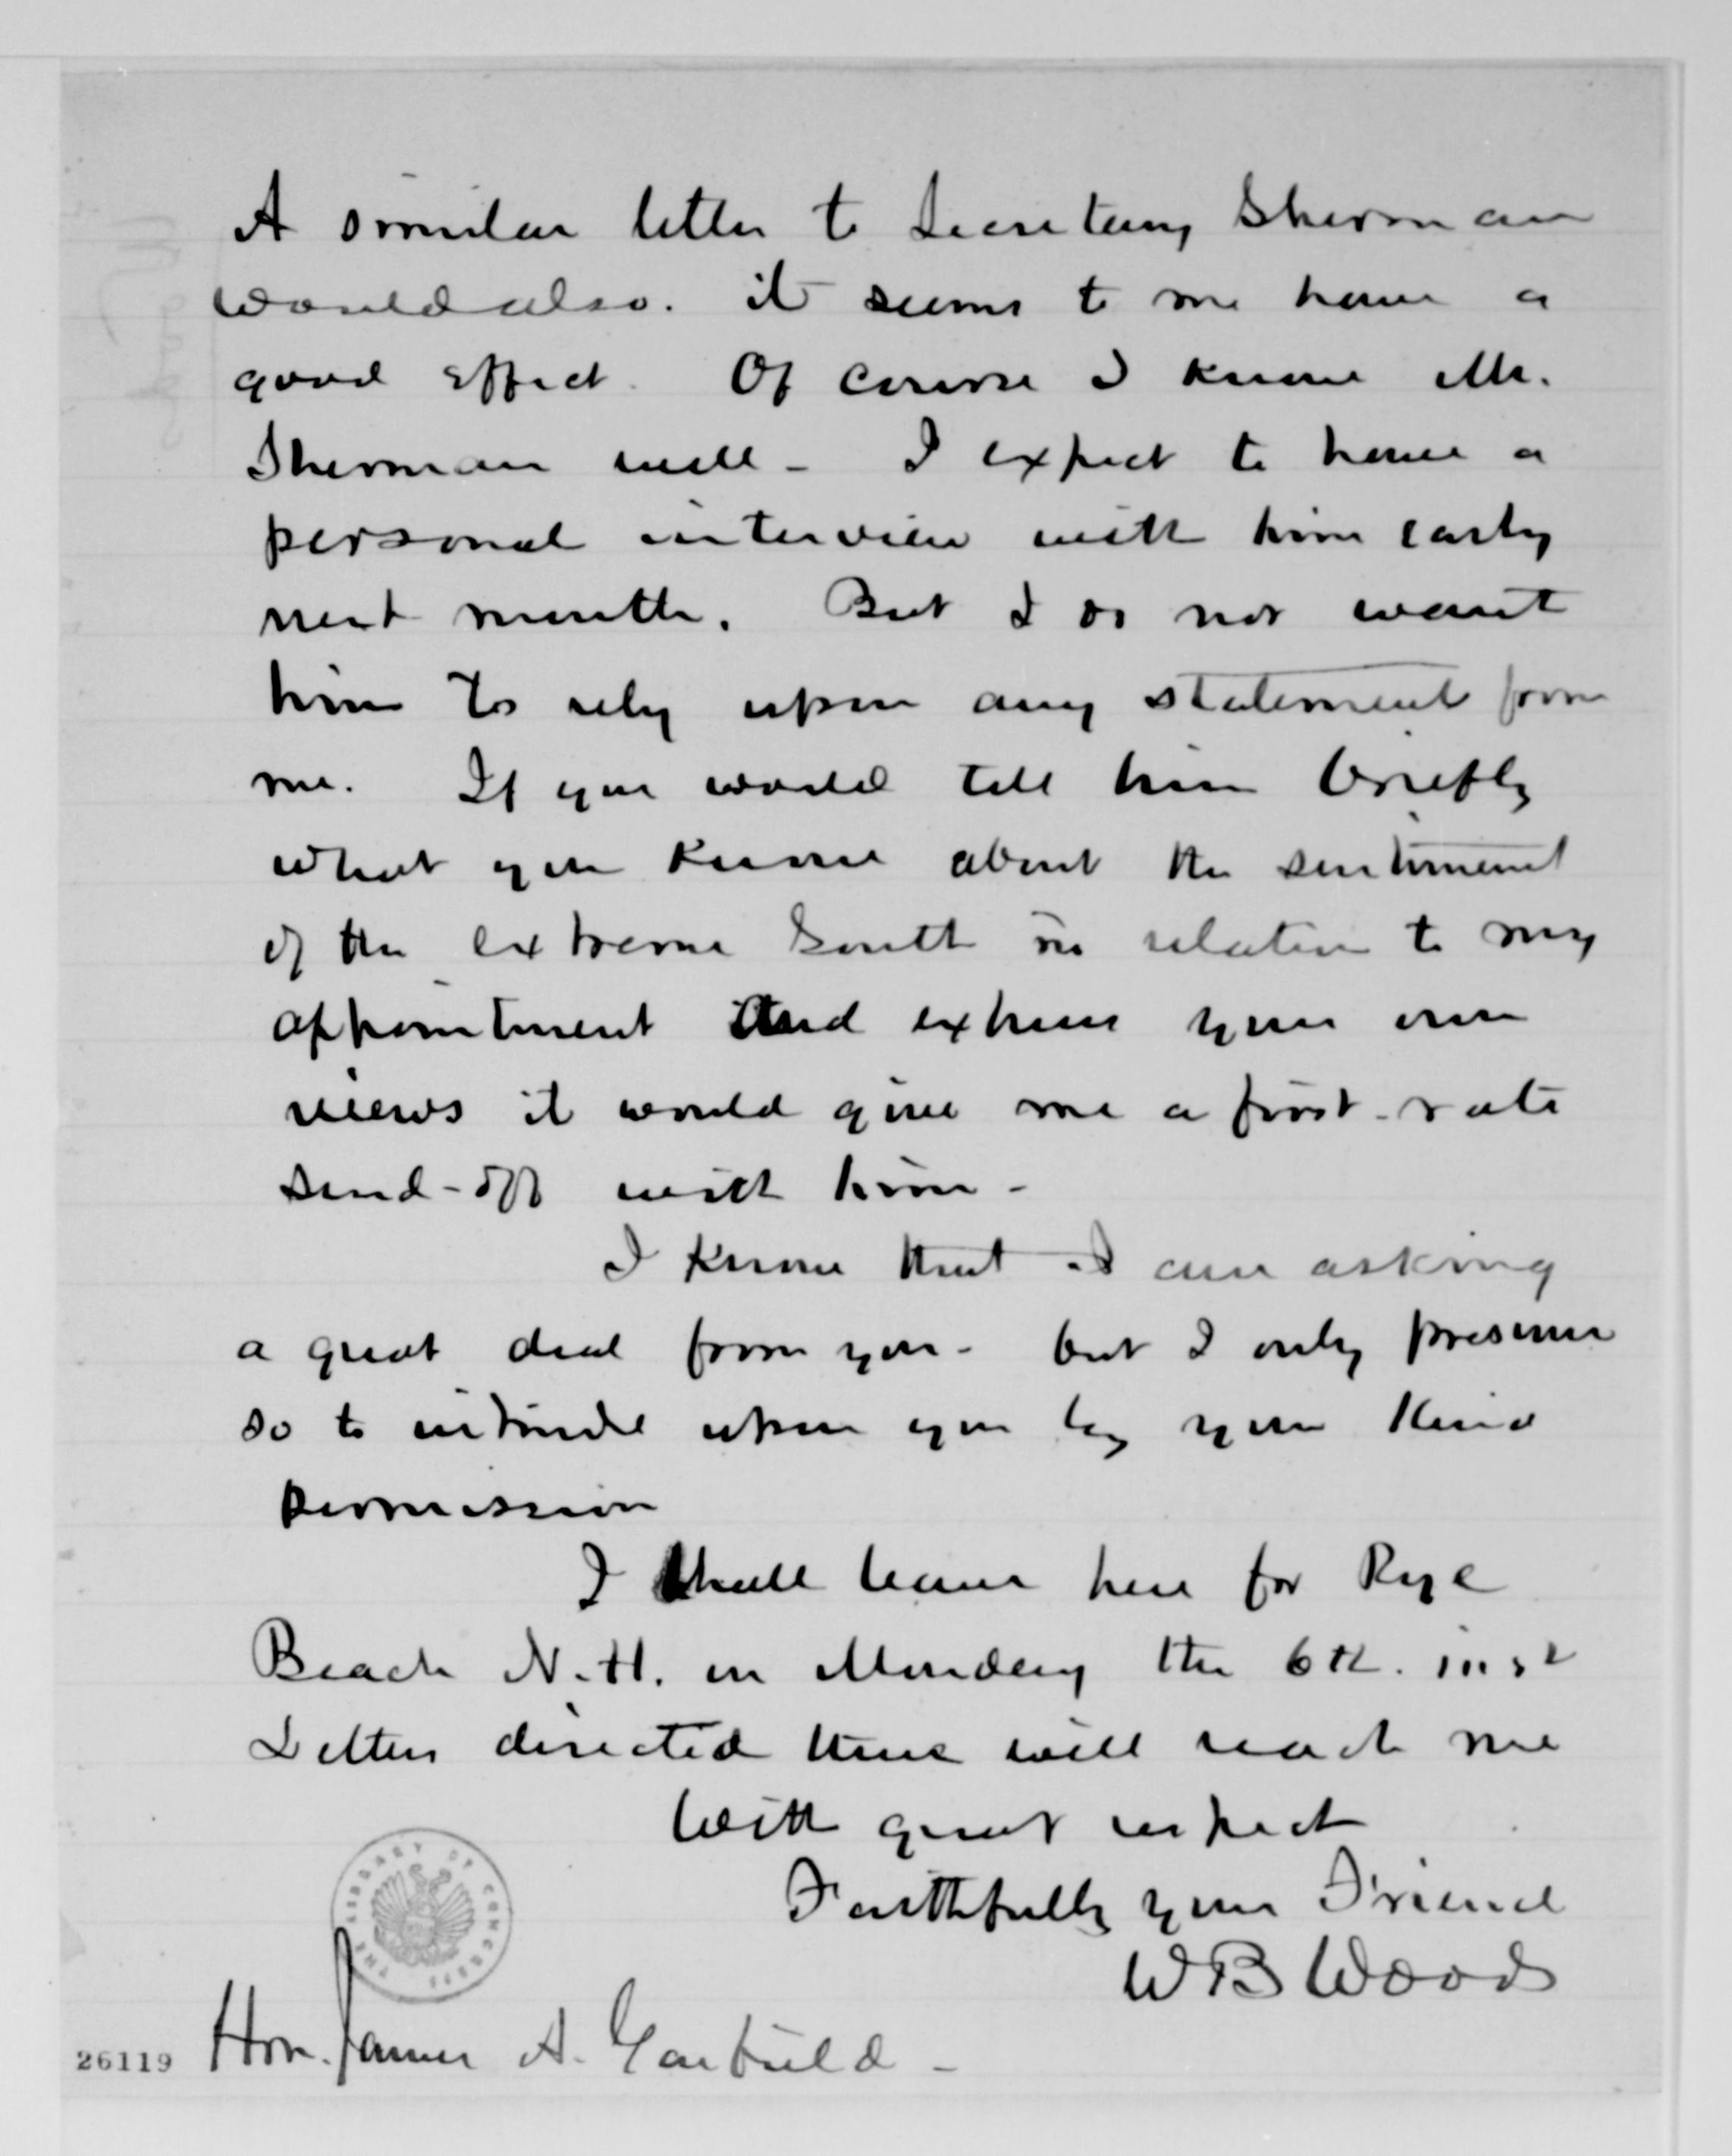 A similar letter to Secretary Sherman
would also. it seems to me have a
good effect. Of course I know Mr.
Sherman well - I expect to have a
personal interview with him early
next month. But I do not want
him to rely upon any statement from
me. If you would tell him briefly
what you know about the sentiment
of the extreme South in relation to my
appointment and express your own
views it would give me a first-rate
send-off with him -
I know that I am asking
a great deal from you - but I only presume
so to intrude upon you by your kind
permission
I shall leave here for Rye
Beach N.H. on Monday the 6th. inst
Letters directed there will reach me
With great respect
Faithfully your Friend
W B Woods
THE LIBRARY OF CONGRESS
26119 Hon. James A. Garfield -